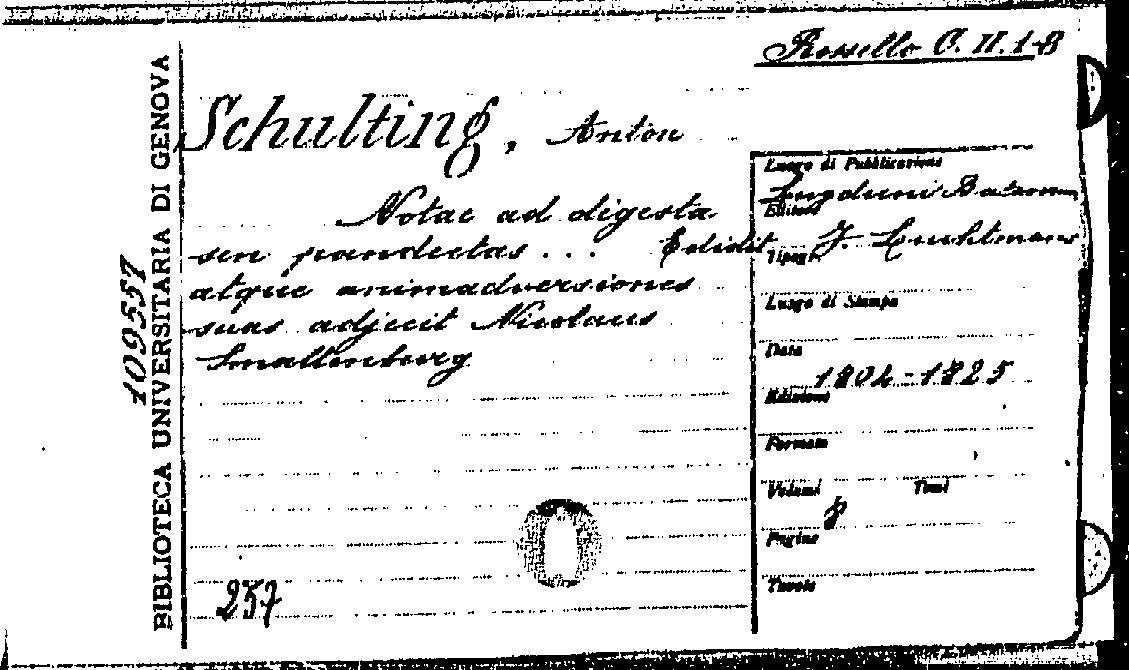 Rossello C. II. 1-8
Schulting, Anton
Notae ad digesta
seu pandectas ... Edidit
atque animadversiones
suas adjecit Nicolaus
Smallenburg
257
BIBLIOTECA UNIVERSITARIA DI GENOVA
109557
Luogo di Pubblicazione
Lugduni Batavorum
Editore
J. Luchtmans
Tipogr.
Luogo di Stampa
Data
1804-1825
Edizione
Formato
Volumi Tomi
8
Pagine
Tavole